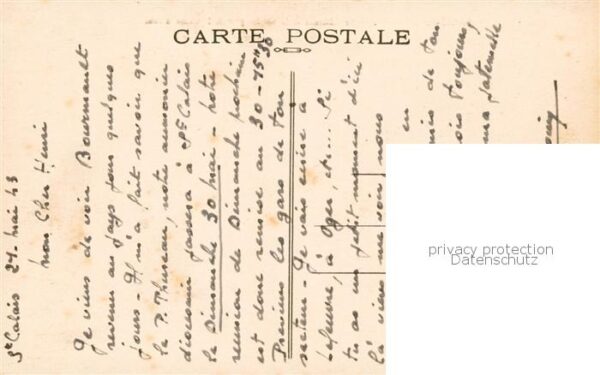 CARTE POSTALE
St Calais 24. mai 43
Mon Cher Henri
Je viens de voir Bourmault
revenu au pays pour quelques
jours - Il m'a fait savoir que
le P. Thuseau, notre aumonier
diocesain passera à St Calais
le Dimanche 30 mai - notre
reunion de Dimanche prochain
est donc remise au 30 - 15H30
Previens les gars de ton
secteur - Je vais ecrire à
Lefeuvre, à Oger, etc... Si
tu as un petit moment d'ici
là viens me voir, nous
en
de ton
toujours,
ma fraternelle
privacy protection
Datenschutz